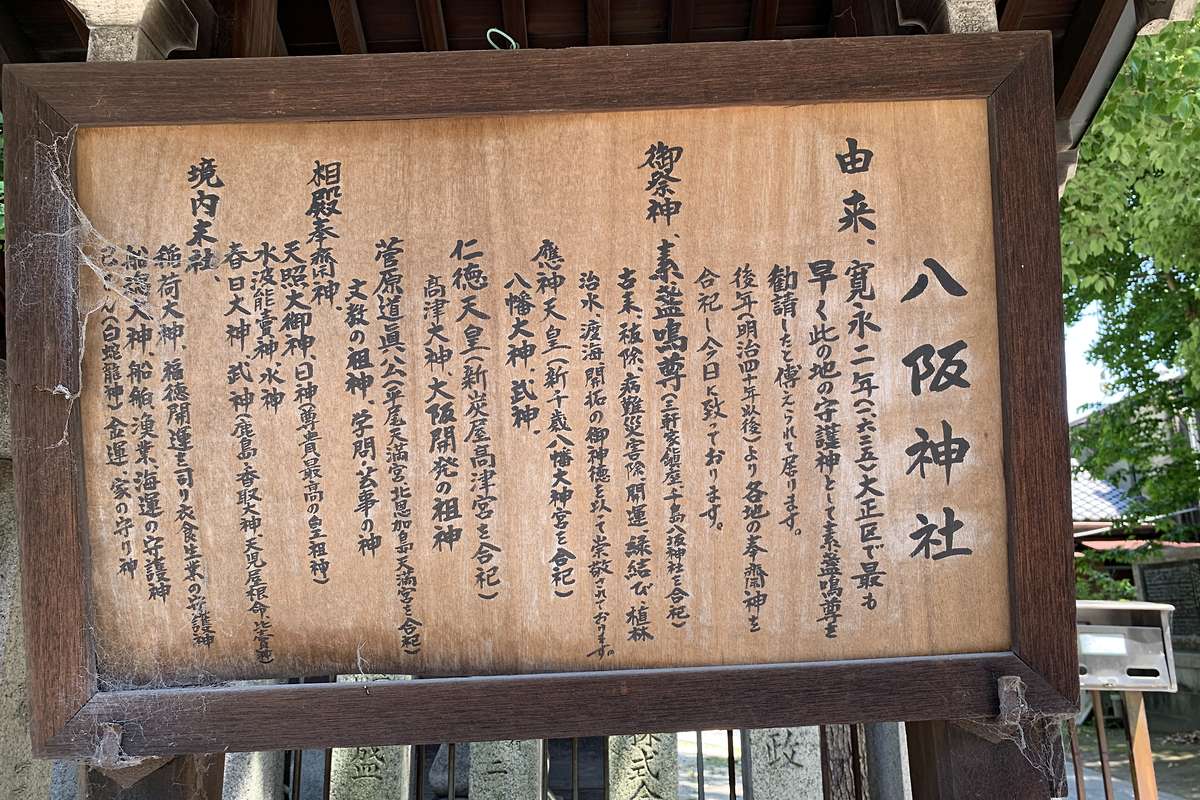 八阪神社
由来、寛永二年(一六三五)大正区で最も
早く此の地の守護神として素盞嗚尊を
勧請したと傳えられて居ります。
後年(明治四十年以後)より各地の奉齋神を
合祀し今日に致って おります。
御祭神、素盞嗚尊(三軒家鎮座、千島八阪神社を合祀)
古来、祓除、病難災害除、開運、縁結び、植林
治水、渡海、開拓の御神徳を以て崇敬されております。
應神天皇(新千歳八幡大神宮を合祀)
八幡大神、武神、
仁徳天皇(新炭屋高津宮を合祀)
高津大神、大阪開発の祖神
菅原道眞公(平尾天満宮、北恩加島天満宮を合祀)
文教の祖神、学問・芸事の神
相殿奉齋神、
天照大御神、日神(尊貴最高の皇祖神)
水波能賣神、水神
春日大神、武神(鹿島・香取大神・天児屋根命・比賣神)
境内末社、
稲荷大神、福徳開運を司り衣食生業の守護神
船玉大神、船舶、漁業、海運の守護神
巳さん(白蛇龍神)金運、家の守り神
盛
二
株式会
政